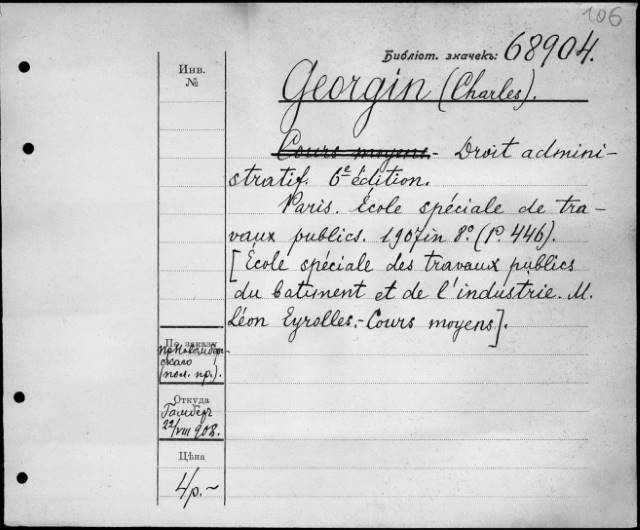 106
Библіот. значекъ: 68904.
Инв.
№
Georgin (Charles).
Cours moyens.- Droit admini-
stratif. 6e édition.
Paris. École spéciale de tra-
vaux publics. 1907 in 8º. (P. 446).
[École spéciale des travaux publics
du batiment et de l'industrie. M.
Léon Eyrolles.- Cours moyens].
По заказу
(пол. пр.).
Откуда
22/VIII 908.
Цѣна
4 р. ~